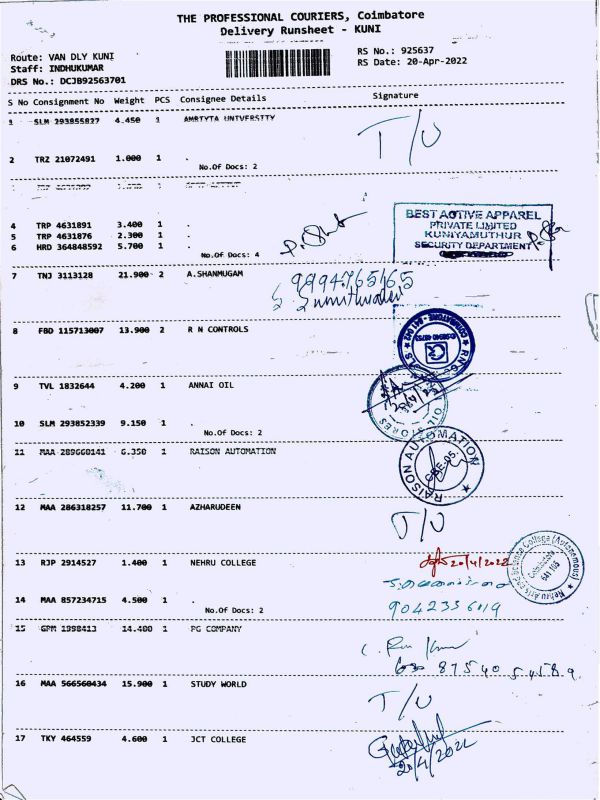 THE PROFESSIONAL COURIERS, Coimbatore
Delivery Runsheet - KUNI
Route: VAN DLY KUNI
Staff: INDHUKUMAR
DRS No.: DCJB92563701
RS No.: 925637
RS Date: 20-Apr-2022
S No Consignment No Weight PCS Consignee Details Signature
1 SLM 293855827 4.450 1 AMRITYTA UNIVERSITY
T/U
2 TRZ 21072491 1.000 1 .
No.Of Docs: 2
4 TRP 4631891 3.400 1 .
5 TRP 4631876 2.300 1 .
6 HRD 364848592 5.700 1 .
No.Of Docs: 4
BEST ACTIVE APPAREL
PRIVATE LIMITED
KUNIYAMUTHUR
SECURITY DEPARTMENT
7 TNJ 3113128 21.900 2 A.SHANMUGAM
9994765165
8 FBD 115713007 13.900 2 R N CONTROLS
9 TVL 1832644 4.200 1 ANNAI OIL
10 SLM 293852339 9.150 1 .
No.Of Docs: 2
11 MAA 289660141 6.350 1 RAISON AUTOMATION
RAISON AUTOMATION
CBE-05.
12 MAA 286318257 11.700 1 AZHARUDEEN
T/U
13 RJP 2914527 1.400 1 NEHRU COLLEGE
20/4/2022
14 MAA 857234715 4.500 1 .
No.Of Docs: 2
Nehru Arts and Science College (Autonomous)
Coimbatore
641 105
15 GPM 1998413 14.400 1 PG COMPANY
16 MAA 566560434 15.900 1 STUDY WORLD
T/U
17 TKY 464559 4.600 1 JCT COLLEGE
20/4/2022